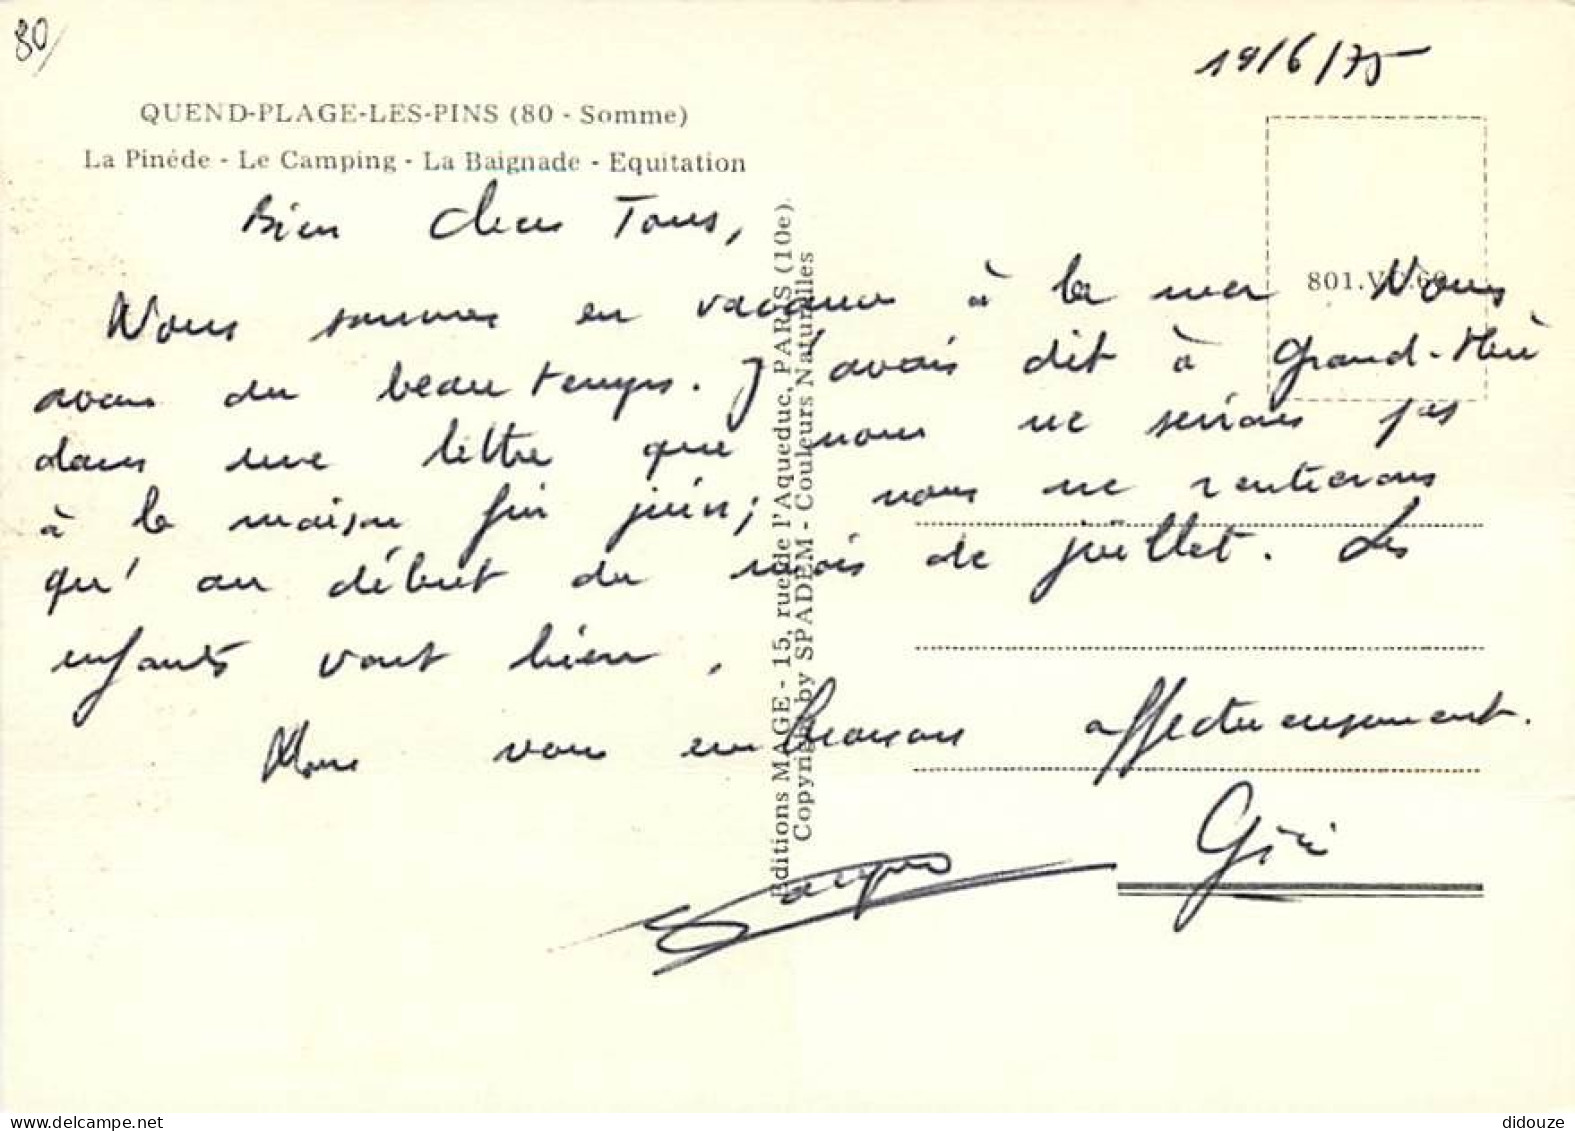 80/
19/6/75
QUEND-PLAGE-LES-PINS (80 - Somme)
La Pinède - Le Camping - La Baignade - Equitation
801.VC.69
Bien chers Tous,
Nous sommes en vacances à la mer Nous
avons du beau temps. J'avais dit à Grand-Mère
dans une lettre que nous ne serions pas
à la maison fin juin; nous ne rentrerons
qu'au début du mois de juillet. Les
enfants vont bien.
Nous vous embrassons affectueusement.
Jacques
Editions MAGE - 15, rue de l'Aqueduc, PARIS (10e)
Copyright by SPADEM - Couleurs Naturelles
delcampe.net
didouze